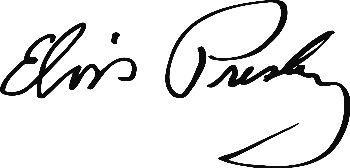 Elvis Presley